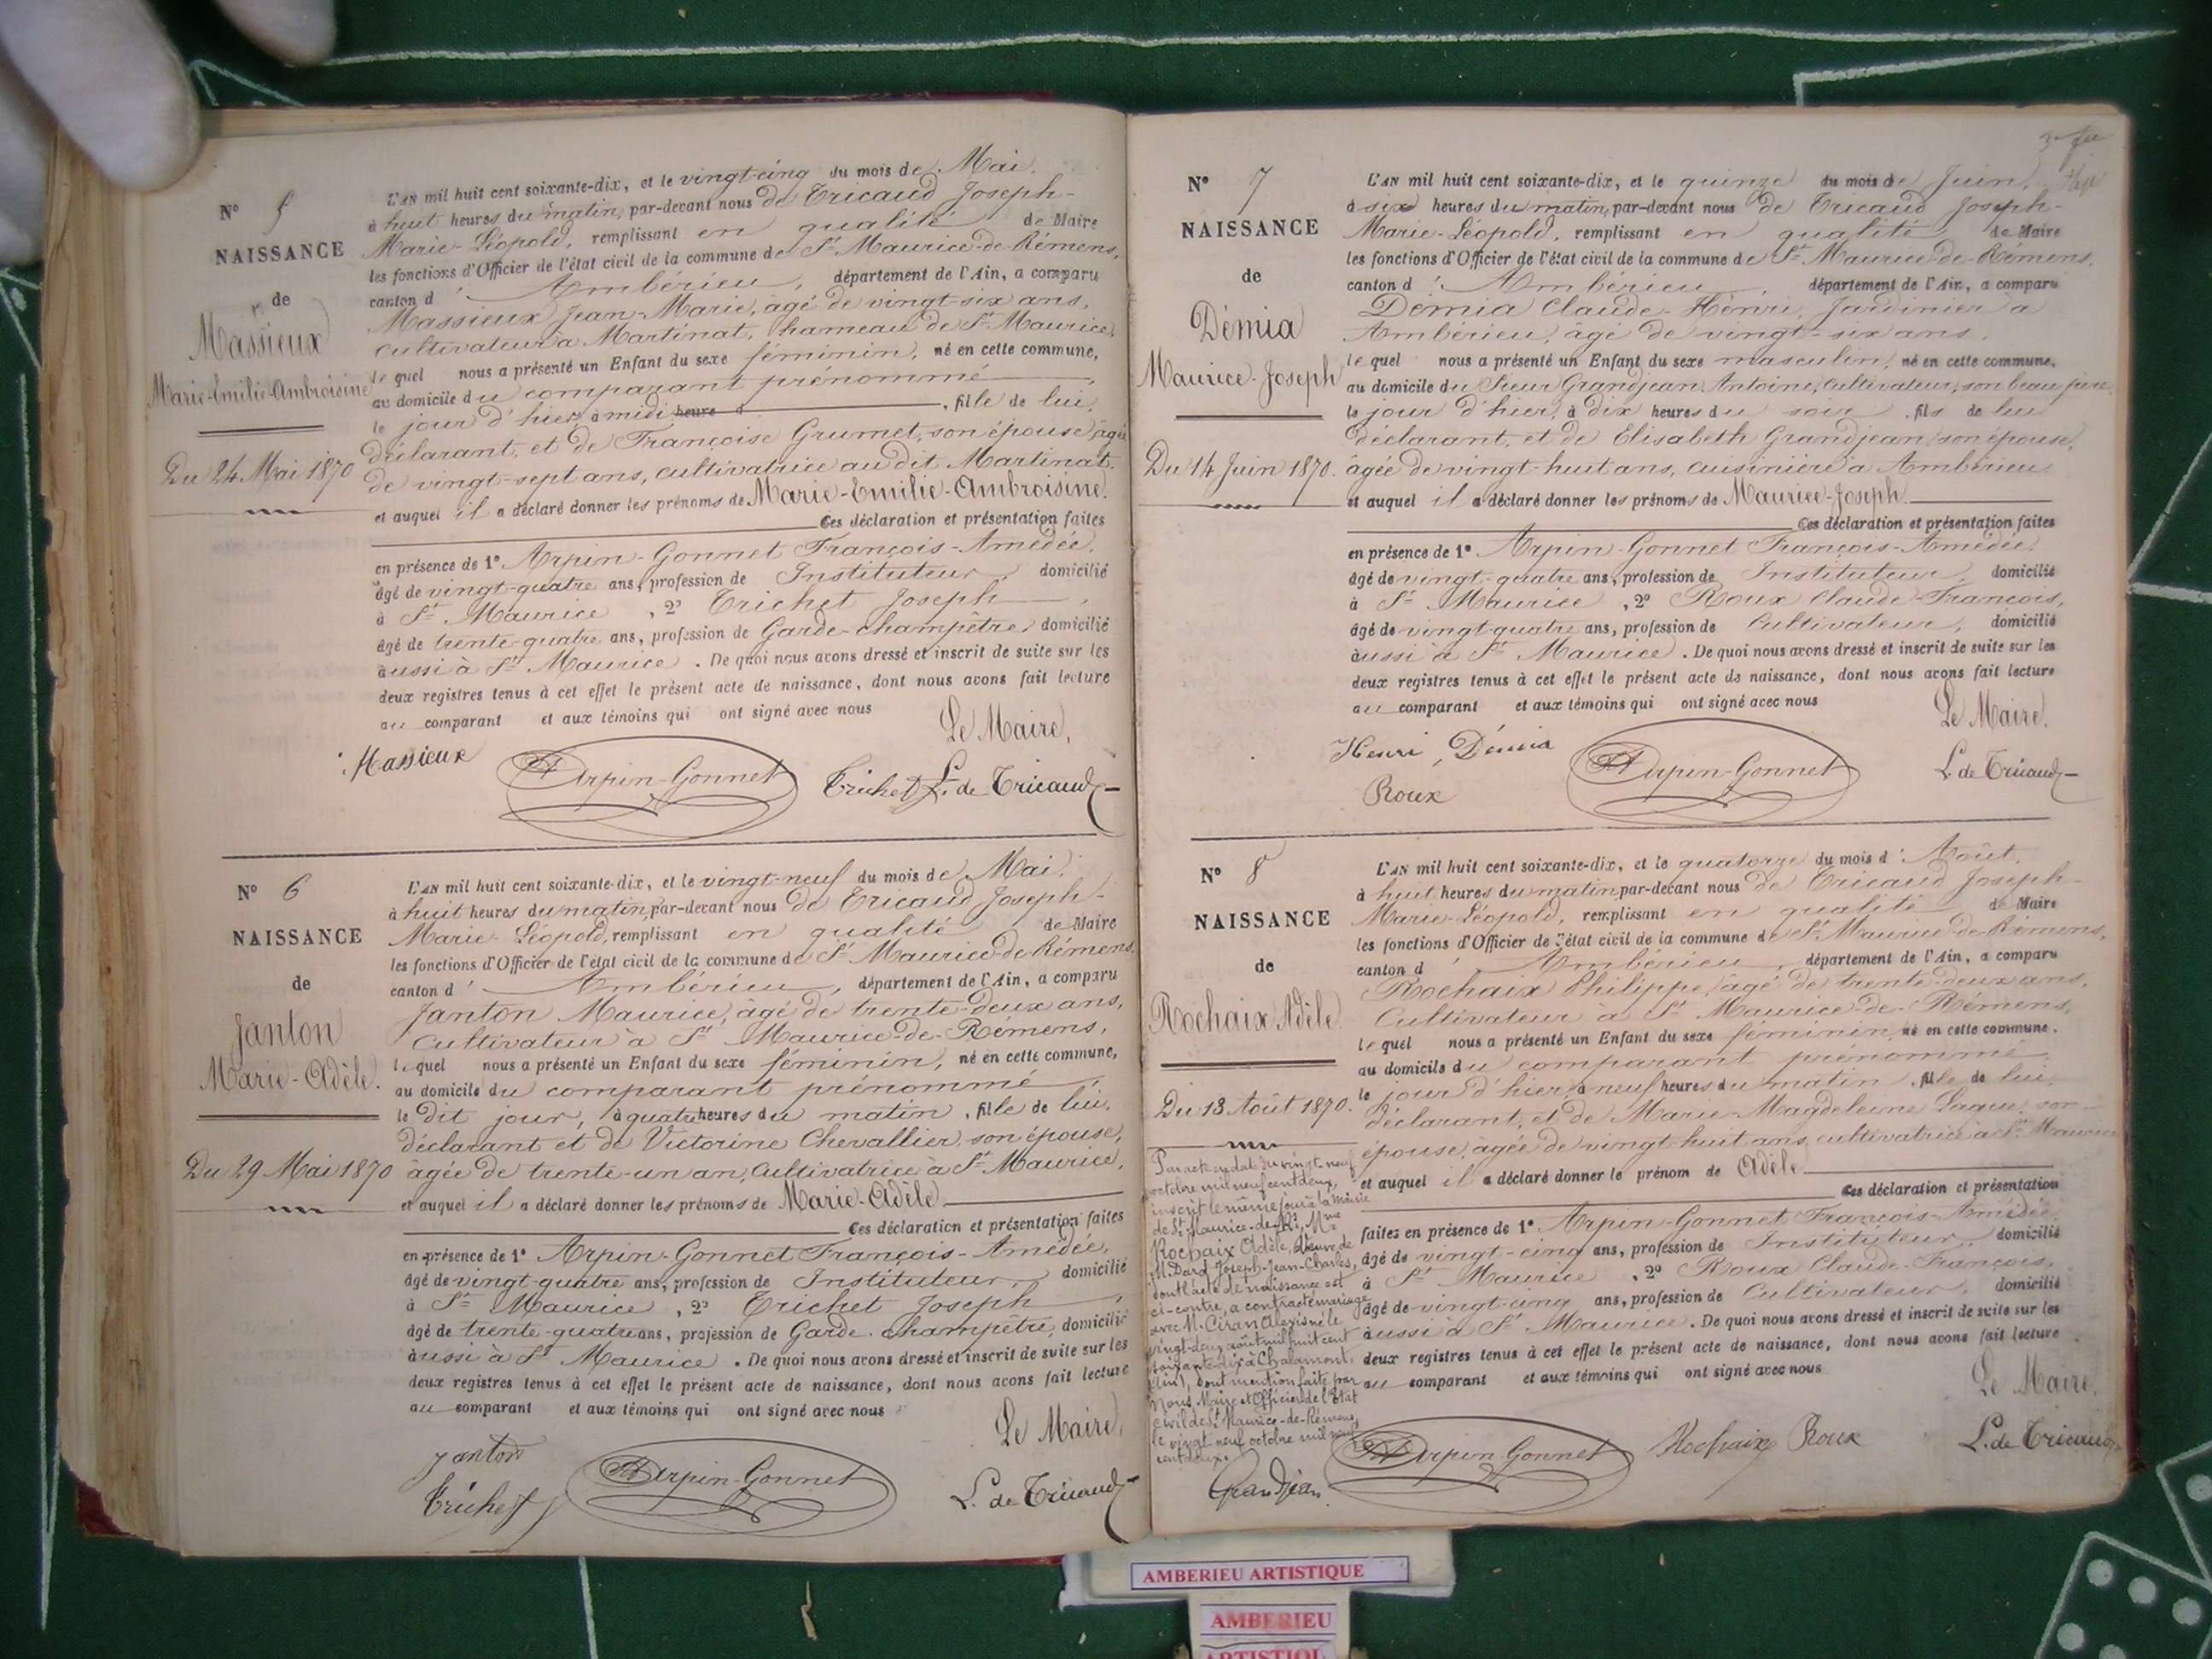 N° 5
NAISSANCE
de
Massieux
Marie-Emilie-Ambroisine
Du 24 Mai 1870
L'AN mil huit cent soixante-dix, et le vingt-cinq du mois de Mai,
à huit heures du matin, par-devant nous de Tricaud Joseph-
Marie-Léopold, remplissant en qualité de Maire
les fonctions d'Officier de l'état civil de la commune de St Maurice-de-Rémens,
canton d' Ambérieu, département de l'Ain, a comparu
Massieux Jean-Marie, âgé de vingt-six ans,
cultivateur à Martinat, hameau de St Maurice,
lequel nous a présenté un Enfant du sexe féminin, né en cette commune,
au domicile du comparant prénommé,
le jour d'hier, à midi heure d , fille de lui,
déclarant, et de Françoise Grumet, son épouse, âgée
de vingt-sept ans, cultivatrice au dit Martinat.
et auquel il a déclaré donner les prénoms de Marie-Emilie-Ambroisine.
Ces déclaration et présentation faites
en présence de 1° Arpin-Gonnet François-Amédée,
âgé de vingt-quatre ans, profession de Instituteur, domicilié
à St Maurice, 2° Trichet Joseph,
âgé de trente-quatre ans, profession de Garde-champêtre, domicilié
aussi à St Maurice. De quoi nous avons dressé et inscrit de suite sur les
deux registres tenus à cet effet le présent acte de naissance, dont nous avons fait lecture
au comparant et aux témoins qui ont signé avec nous
Le Maire,
Massieux Arpin-Gonnet Trichet L. de Tricaud
N° 6
NAISSANCE
de
Janton
Marie-Adèle.
Du 29 Mai 1870
L'AN mil huit cent soixante-dix, et le vingt-neuf du mois de Mai,
à huit heures du matin, par-devant nous de Tricaud Joseph-
Marie-Léopold, remplissant en qualité de Maire
les fonctions d'Officier de l'état civil de la commune de St Maurice-de-Rémens,
canton d' Ambérieu, département de l'Ain, a comparu
Janton Maurice, âgé de trente-deux ans,
cultivateur à St Maurice-de-Rémens,
lequel nous a présenté un Enfant du sexe féminin, né en cette commune,
au domicile du comparant prénommé,
le dit jour, à quatre heures du matin, fille de lui,
déclarant et de Victorine Chevallier, son épouse,
âgée de trente-un an, cultivatrice à St Maurice,
et auquel il a déclaré donner les prénoms de Marie-Adèle
Ces déclaration et présentation faites
en présence de 1° Arpin-Gonnet François-Amédée,
âgé de vingt-quatre ans, profession de Instituteur, domicilié
à St Maurice, 2° Trichet Joseph,
âgé de trente-quatre ans, profession de Garde-champêtre, domicilié
aussi à St Maurice. De quoi nous avons dressé et inscrit de suite sur les
deux registres tenus à cet effet le présent acte de naissance, dont nous avons fait lecture
au comparant et aux témoins qui ont signé avec nous
Le Maire,
Janton
Trichet Arpin-Gonnet L. de Tricaud
N° 7
NAISSANCE
de
Démia
Maurice-Joseph
Du 14 Juin 1870.
L'AN mil huit cent soixante-dix, et le quinze du mois de Juin,
à six heures du matin, par-devant nous de Tricaud Joseph-
Marie-Léopold, remplissant en qualité de Maire
les fonctions d'Officier de l'état civil de la commune de St Maurice-de-Rémens,
canton d' Ambérieu, département de l'Ain, a comparu
Démia Claude-Henri, Jardinier à
Ambérieu, âgé de vingt-six ans,
lequel nous a présenté un Enfant du sexe masculin, né en cette commune,
au domicile du Sieur Grandjean Antoine, cultivateur, son beau père,
le jour d'hier, à dix heures du soir, fils de lui
déclarant, et de Elisabeth Grandjean, son épouse,
âgée de vingt-huit ans, cuisinière à Ambérieu
et auquel il a déclaré donner les prénoms de Maurice-Joseph
Ces déclaration et présentation faites
en présence de 1° Arpin-Gonnet François-Amédée,
âgé de vingt-quatre ans, profession de Instituteur, domicilié
à St Maurice, 2° Roux Claude-François,
âgé de vingt-quatre ans, profession de Cultivateur, domicilié
aussi à St Maurice. De quoi nous avons dressé et inscrit de suite sur les
deux registres tenus à cet effet le présent acte de naissance, dont nous avons fait lecture
au comparant et aux témoins qui ont signé avec nous
Le Maire.
Henri Démia Arpin-Gonnet L. de Tricaud
Roux
N° 8
NAISSANCE
de
Rochaix Adèle.
Du 13 Août 1870.
Par acte en date du vingt-neuf
octobre mil neuf cent deux,
inscrit le même jour à la Mairie
de St Maurice-de-Rs, Mme
Rochaix Adèle, veuve de
M. Dard Joseph-Jean-Charles,
dont l'acte de naissance est
ci-contre, a contracté mariage
avec M. Ciran Alexis né le
vingt-deux août mil huit cent
soixante-dix à Chalamont,
(Ain), dont mention faite par
Nous Maire et Officier de l'Etat
civil de St Maurice-de-Rémens,
le vingt-neuf octobre mil neuf
cent deux.
Grandjean
L'AN mil huit cent soixante-dix, et le quatorze du mois d' Août,
à huit heures du matin, par-devant nous de Tricaud Joseph-
Marie-Léopold, remplissant en qualité de Maire
les fonctions d'Officier de l'état civil de la commune de St Maurice-de-Rémens,
canton d' Ambérieu, département de l'Ain, a comparu
Rochaix Philippe, âgé de trente-deux ans,
Cultivateur à St Maurice-de-Rémens,
lequel nous a présenté un Enfant du sexe féminin, né en cette commune,
au domicile du comparant prénommé
le jour d'hier, à neuf heures du matin, fille de lui,
déclarant, et de Marie-Magdeleine son
épouse, âgée de vingt-huit ans, cultivatrice à St Maurice
et auquel il a déclaré donner le prénom de Adèle
Ces déclaration et présentation
faites en présence de 1° Arpin-Gonnet François-Amédée,
âgé de vingt-cinq ans, profession de Instituteur, domicilié
à St Maurice, 2° Roux Claude-François,
âgé de vingt-cinq ans, profession de Cultivateur, domicilié
aussi à St Maurice. De quoi nous avons dressé et inscrit de suite sur les
deux registres tenus à cet effet le présent acte de naissance, dont nous avons fait lecture
au comparant et aux témoins qui ont signé avec nous
Le Maire,
Arpin-Gonnet Rochaix Roux L. de Tricaud
AMBERIEU ARTISTIQUE
AMBERIEU
ARTISTIQUE